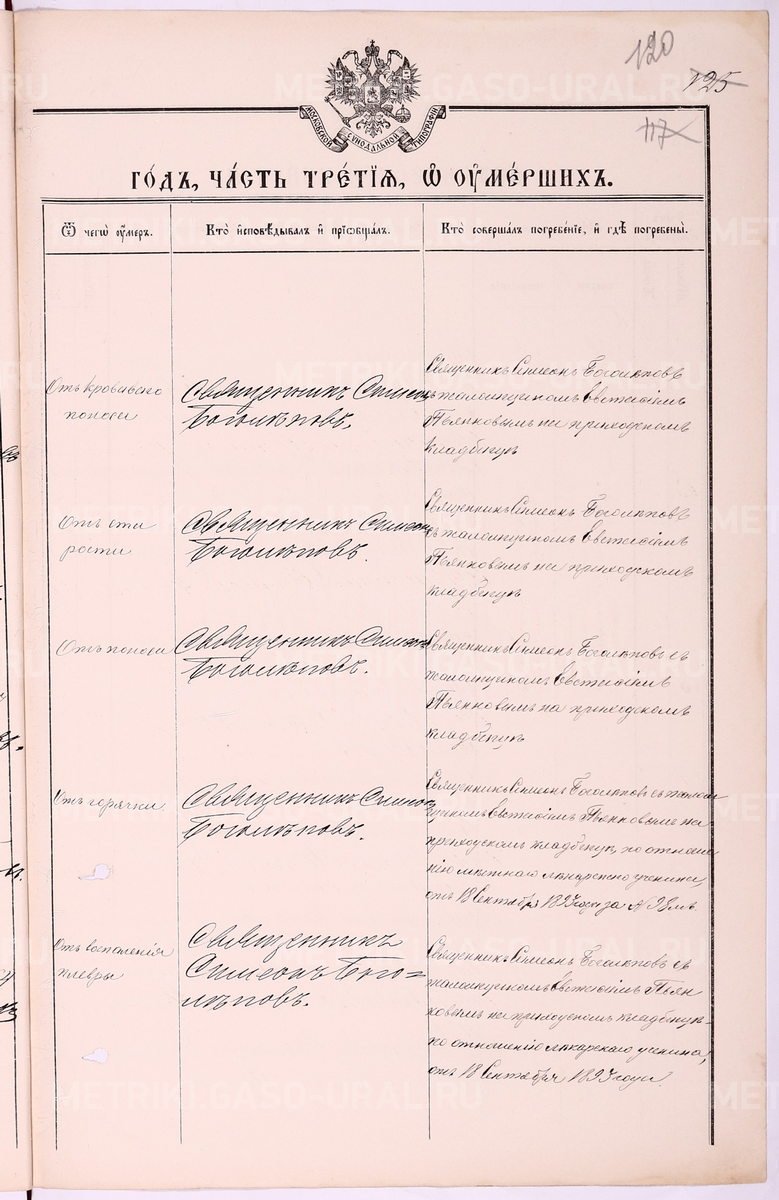 120
125
117
МОСКОВСКОЙ СѴНОДАЛЬНОЙ ТИПОГРАФІИ
ГО́ДЪ, ЧА́СТЬ ТРЕ́ТІЯ, Ѡ ОУМЕ́РШИХЪ.
Ѿ чегѡ̀ оу́меръ.
Кто̀ и҆сповѣ́дывалъ и҆ прїѡбща́лъ.
Кто̀ соверша́лъ погребе́нїе, и҆ гдѣ̀ погребены̀.
Отъ кроваваго
поноса
Священникъ Симеонъ
Боголѣповъ.
Священникъ Симеонъ Боголѣповъ
съ псаломщикомъ Евстафіемъ
Пьянковымъ на приходскомъ
кладбищѣ
Отъ ста
рости
Священникъ Симеонъ
Боголѣповъ.
Священникъ Симеонъ Боголѣповъ
съ псаломщикомъ Евстафіемъ
Пьянковымъ на приходскомъ
кладбищѣ
Отъ поноса
Священникъ Симеонъ
Боголѣповъ.
Священникъ Симеонъ Боголѣповъ съ
псаломщикомъ Евстафіемъ
Пьянковымъ на приходскомъ
кладбищѣ
Отъ горячки
Священникъ Симеонъ
Боголѣповъ.
Священникъ Симеонъ Боголѣповъ съ псалом
щикомъ Евстафіемъ Пьянковымъ на
приходскомъ кладбищѣ, по отноше
нію мѣстнаго лѣкарскаго ученика,
отъ 18 Сентября 1897 года за № 98мъ.
Отъ воспаленія
плевры
Священникъ
Симеонъ Бого=
лѣповъ.
Священникъ Симеонъ Боголѣповъ съ
псаломщикомъ Евстафіемъ Пьян
ковымъ на приходскомъ кладбищѣ
по отношенію лѣкарскаго ученика,
отъ 18 Сентября 1897 года.
METRIKI.GASO-URAL.RU